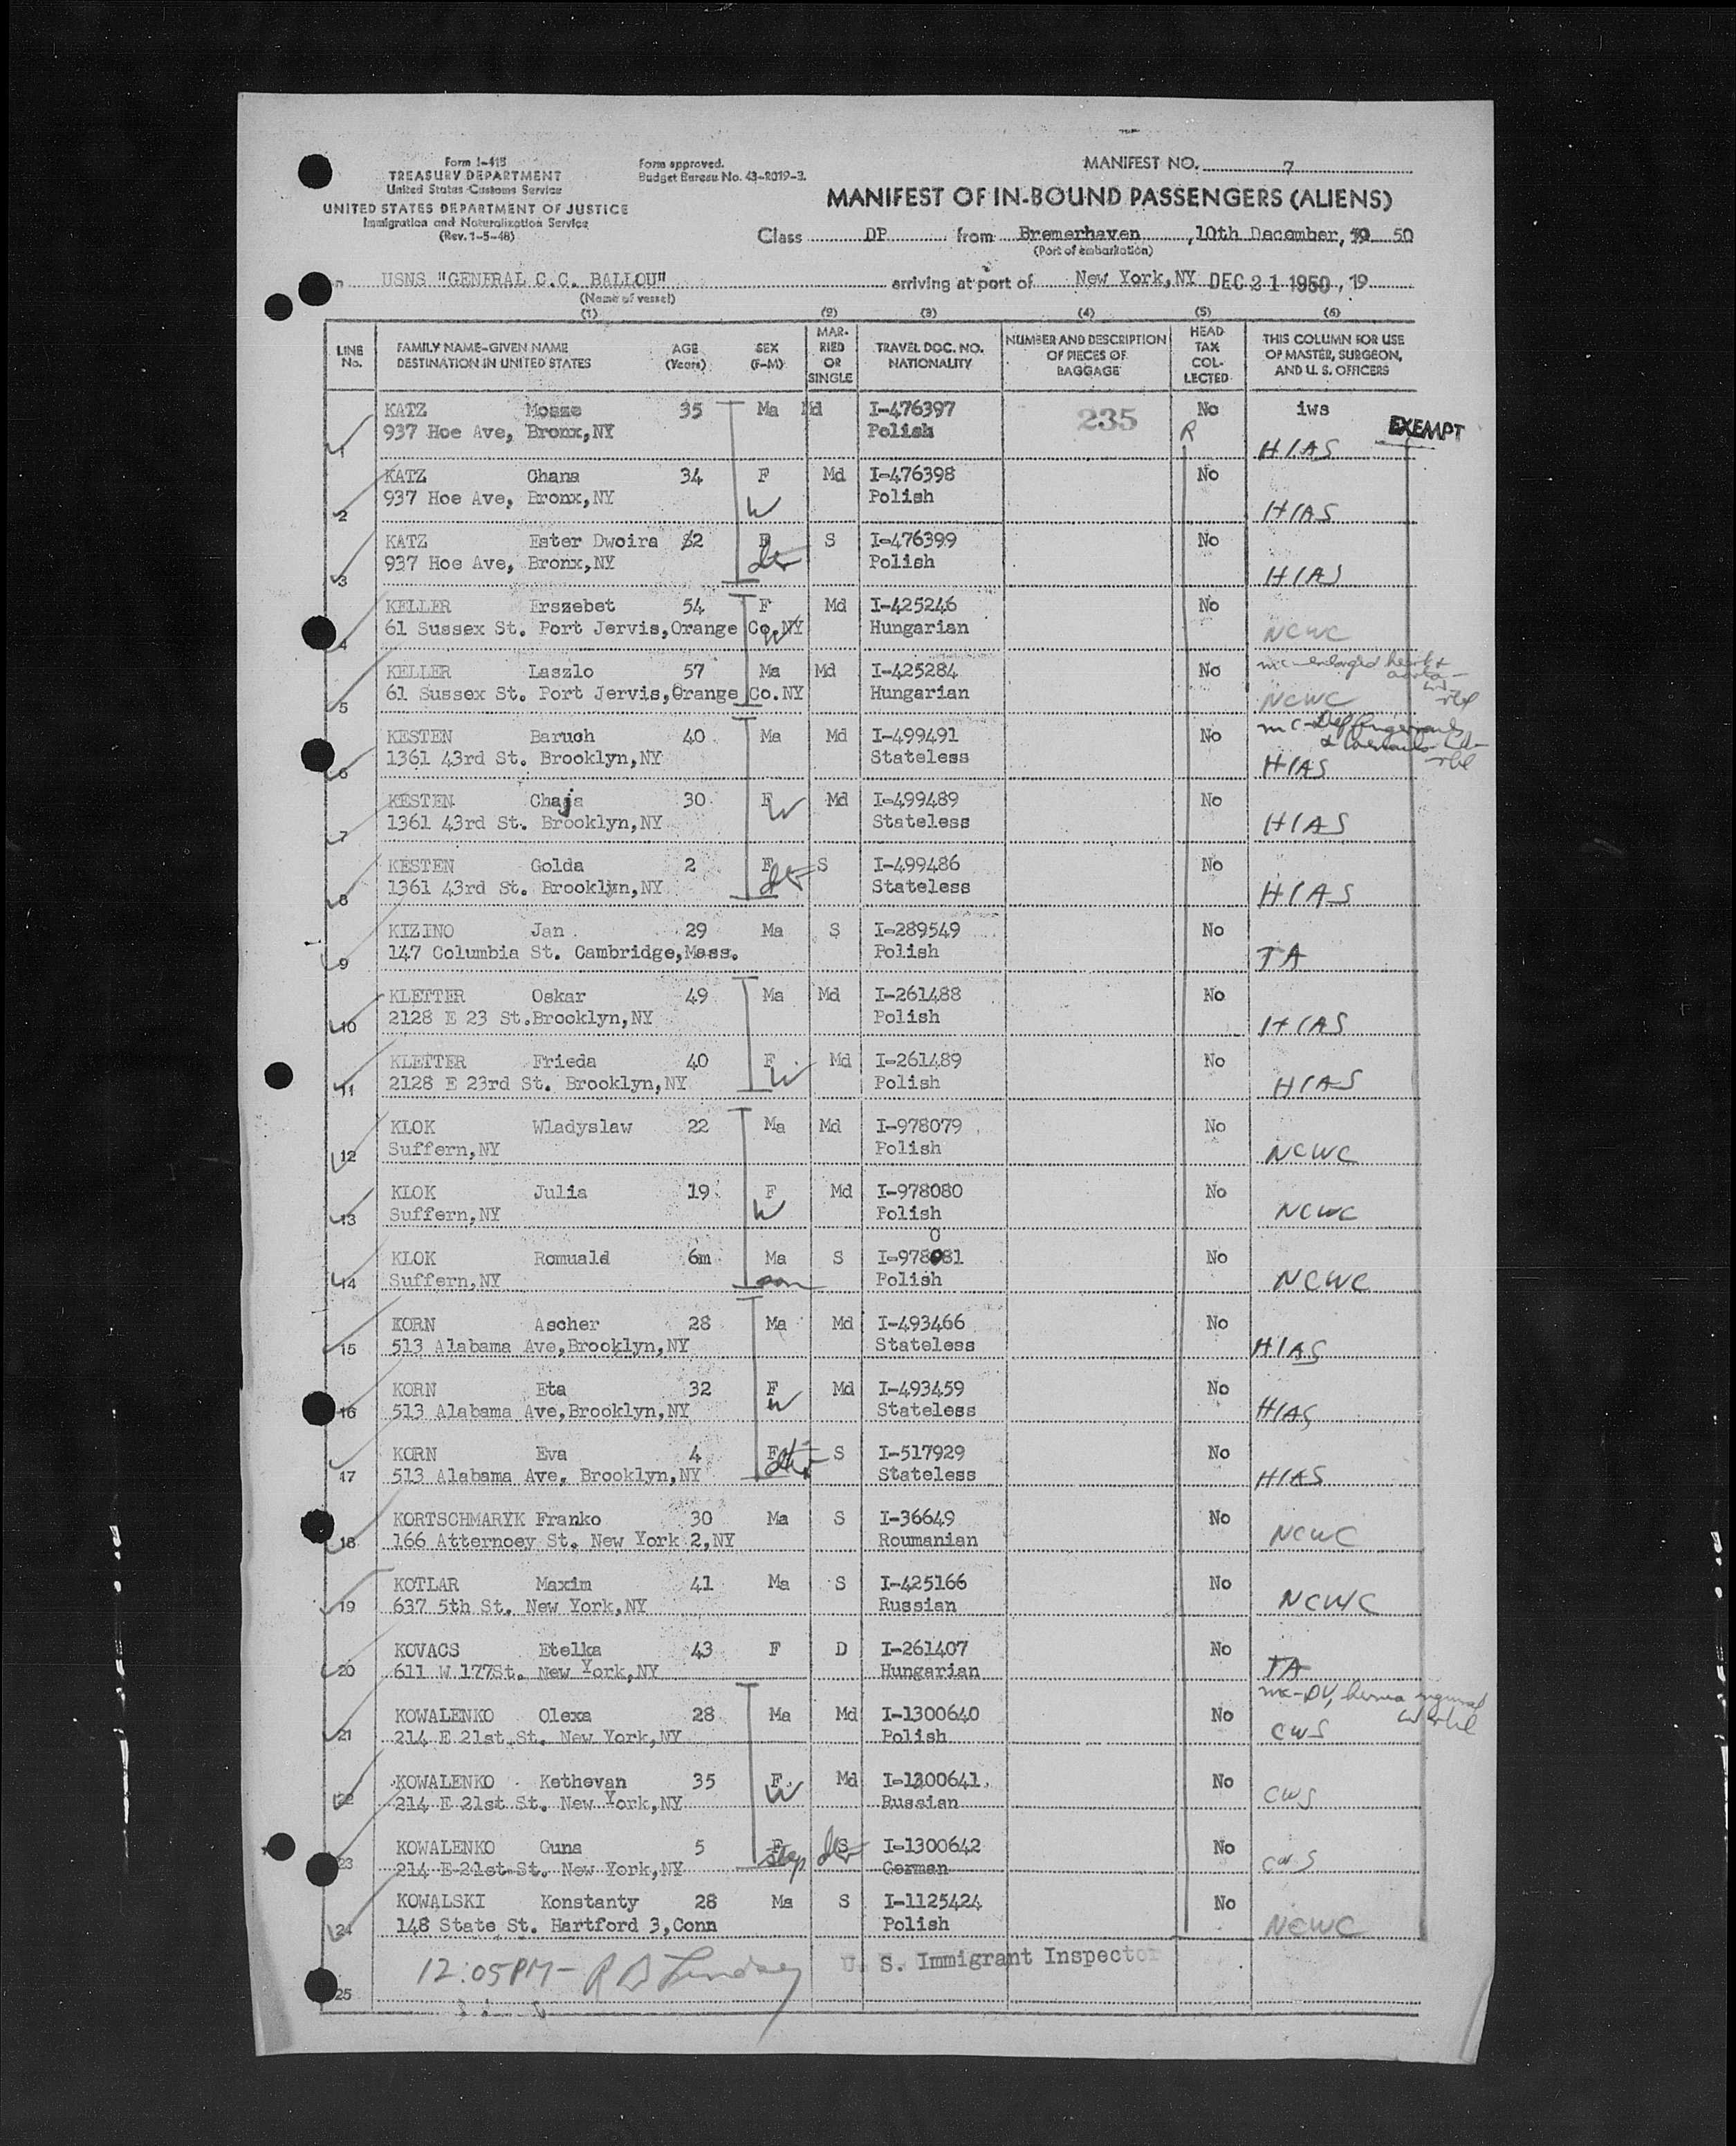 Form I-418
TREASURY DEPARTMENT
United States Customs Service
UNITED STATES DEPARTMENT OF JUSTICE
Immigration and Naturalization Service
(Rev. 1-5-48)
Form approved.
Budget Bureau No. 43-R019-3.
MANIFEST NO. 7
MANIFEST OF IN-BOUND PASSENGERS (ALIENS)
Class DP from Bremerhaven, 10th December, 50
(Port of embarkation)
USNS "GENERAL C.C. BALLOU" arriving at port of New York,NY DEC 21 1950, 19
(Name of vessel)
(1) (2) (3) (4) (5) (6)
LINE No. FAMILY NAME-GIVEN NAME DESTINATION IN UNITED STATES AGE (Years) SEX (F-M) MARRIED OR SINGLE TRAVEL DOC. NO. NATIONALITY NUMBER AND DESCRIPTION OF PIECES OF BAGGAGE HEAD TAX COLLECTED THIS COLUMN FOR USE OF MASTER, SURGEON, AND U. S. OFFICERS
KATZ Mosze 35 Ma Md I-476397 235 No iws
1 937 Hoe Ave, Bronx,NY Polish R HIAS EXEMPT
KATZ Chana 34 F Md I-476398 No
2 937 Hoe Ave, Bronx,NY W Polish HIAS
KATZ Ester Dwoira 2 F S I-476399 No
3 937 Hoe Ave, Bronx,NY dtr Polish HIAS
KELLER Erszebet 54 F Md I-425246 No
4 61 Sussex St. Port Jervis,Orange Co.NY W Hungarian NCWC
KELLER Laszlo 57 Ma Md I-425284 No mc-enlarged heart &
5 61 Sussex St. Port Jervis,Orange Co.NY Hungarian NCWC
KESTEN Baruch 40 Ma Md I-499491 No mc-
6 1361 43rd St. Brooklyn,NY Stateless HIAS
KESTEN Chaja 30 F Md I-499489 No
7 1361 43rd St. Brooklyn,NY W Stateless HIAS
KESTEN Golda 2 F S I-499486 No
8 1361 43rd St. Brooklyn,NY dtr Stateless HIAS
KIZINO Jan 29 Ma S I-289549 No
9 147 Columbia St. Cambridge,Mass. Polish TA
KLETTER Oskar 49 Ma Md I-261488 No
10 2128 E 23 St.Brooklyn,NY Polish HIAS
KLETTER Frieda 40 F Md I-261489 No
11 2128 E 23rd St. Brooklyn,NY W Polish HIAS
KLOK Wladyslaw 22 Ma Md I-978079 No
12 Suffern,NY Polish NCWC
KLOK Julia 19 F Md I-978080 No
13 Suffern,NY W Polish NCWC
0
KLOK Romuald 6m Ma S I-978081 No
14 Suffern,NY son Polish NCWC
KORN Ascher 28 Ma Md I-493466 No
15 513 Alabama Ave,Brooklyn,NY Stateless HIAS
KORN Eta 32 F Md I-493459 No
16 513 Alabama Ave,Brooklyn,NY W Stateless HIAS
KORN Eva 4 F S I-517929 No
17 513 Alabama Ave, Brooklyn,NY dtr Stateless HIAS
KORTSCHMARYK Franko 30 Ma S I-36649 No
18 166 Atternoey St. New York 2,NY Roumanian NCWC
KOTLAR Maxim 41 Ma S I-425166 No
19 637 5th St. New York,NY Russian NCWC
KOVACS Etelka 43 F D I-261407 No
20 611 W 177St. New York,NY Hungarian TA
KOWALENKO Olexa 28 Ma Md I-1300640 No mc-DV, hernia
21 214 E 21st St. New York,NY Polish CWS
KOWALENKO Kethevan 35 F Md I-1300641 No
22 214 E 21st St. New York,NY W Russian CWS
KOWALENKO Guna 5 F S I-1300642 No
23 214 E 21st St. New York,NY step dtr German CWS
KOWALSKI Konstanty 28 Ma S I-1125424 No
24 148 State St. Hartford 3,Conn Polish NCWC
12:05PM- R B Lindsey U. S. Immigrant Inspector
25